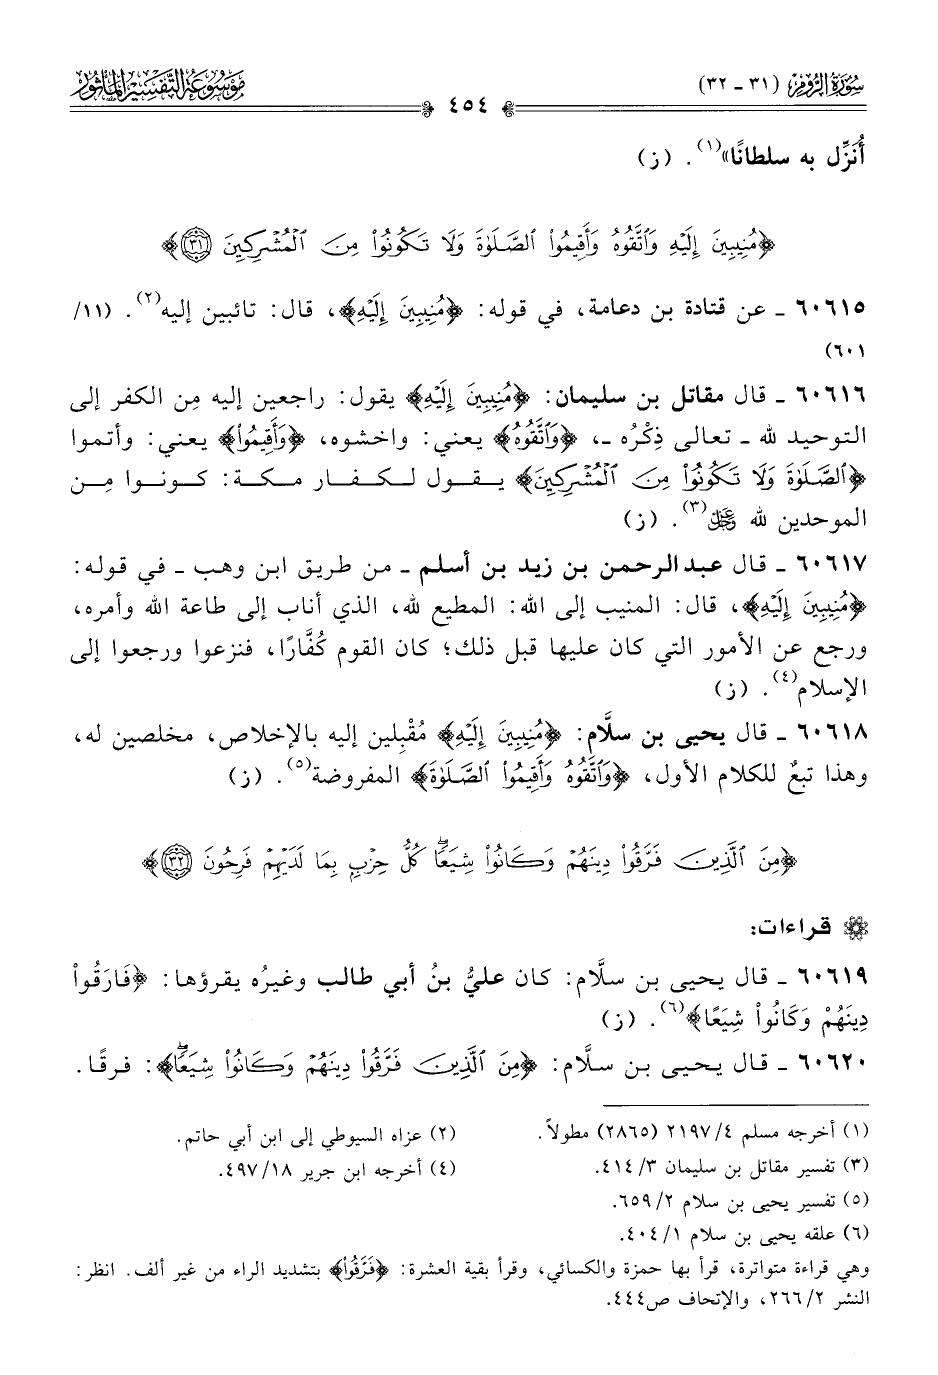 سُورَةُ الرُّومِ (٣١ - ٣٢)
٤٥٤
مَوْسُوعَةُ التَّفْسِيرِ الْمَأْثُور
أُنَزِّل به سلطانًا»(١). (ز)
﴿مُنِيبِينَ إِلَيْهِ وَاتَّقُوهُ وَأَقِيمُوا الصَّلَوٰةَ وَلَا تَكُونُوا مِنَ الْمُشْرِكِينَ ٣١﴾
٦٠٦١٥ - عن قتادة بن دعامة، في قوله: ﴿مُنِيبِينَ إِلَيْهِ﴾، قال: تائبين إليه(٢). (١١/
٦٠١)
٦٠٦١٦ - قال مقاتل بن سليمان: ﴿مُنِيبِينَ إِلَيْهِ﴾ يقول: راجعين إليه مِن الكفر إلى
التوحيد لله - تعالى ذِكْرُه -، ﴿وَاتَّقُوهُ﴾ يعني: واخشوه، ﴿وَأَقِيمُوا﴾ يعني: وأتموا
﴿الصَّلَوٰةَ وَلَا تَكُونُوا مِنَ الْمُشْرِكِينَ﴾ يقول لكفار مكة: كونوا مِن
الموحدين لله ﷿(٣). (ز)
٦٠٦١٧ - قال عبدالرحمن بن زيد بن أسلم - من طريق ابن وهب - في قوله:
﴿مُنِيبِينَ إِلَيْهِ﴾، قال: المنيب إلى الله: المطيع لله، الذي أناب إلى طاعة الله وأمره،
ورجع عن الأمور التي كان عليها قبل ذلك؛ كان القوم كُفَّارًا، فنزعوا ورجعوا إلى
الإسلام(٤). (ز)
٦٠٦١٨ - قال يحيى بن سلَّام: ﴿مُنِيبِينَ إِلَيْهِ﴾ مُقْبِلين إليه بالإخلاص، مخلصين له،
وهذا تبعٌ للكلام الأول، ﴿وَاتَّقُوهُ وَأَقِيمُوا الصَّلَوٰةَ﴾ المفروضة(٥). (ز)
﴿مِنَ الَّذِينَ فَرَّقُوا دِينَهُمْ وَكَانُوا شِيَعًاۖ كُلُّ حِزْبٍ بِمَا لَدَيْهِمْ فَرِحُونَ ٣٢﴾
قراءات:
٦٠٦١٩ - قال يحيى بن سلَّام: كان عليُّ بنُ أبي طالب وغيرُه يقرؤها: ﴿فَارَقُوا
دِينَهُمْ وَكَانُوا شِيَعًا﴾(٦). (ز)
٦٠٦٢٠ - قال يحيى بن سلَّام: ﴿مِنَ الَّذِينَ فَرَّقُوا دِينَهُمْ وَكَانُوا شِيَعًاۖ﴾: فرقًا.
(١) أخرجه مسلم ٢١٩٧/٤ (٢٨٦٥) مطولاً.
(٢) عزاه السيوطي إلى ابن أبي حاتم.
(٣) تفسير مقاتل بن سليمان ٤١٤/٣.
(٤) أخرجه ابن جرير ٤٩٧/١٨.
(٥) تفسير يحيى بن سلام ٦٥٩/٢.
(٦) علقه يحيى بن سلام ٤٠٤/١.
وهي قراءة متواترة، قرأ بها حمزة والكسائي، وقرأ بقية العشرة: ﴿فَرَّقُوا﴾ بتشديد الراء من غير ألف. انظر:
النشر ٢٦٦/٢، والإتحاف ص٤٤٤.